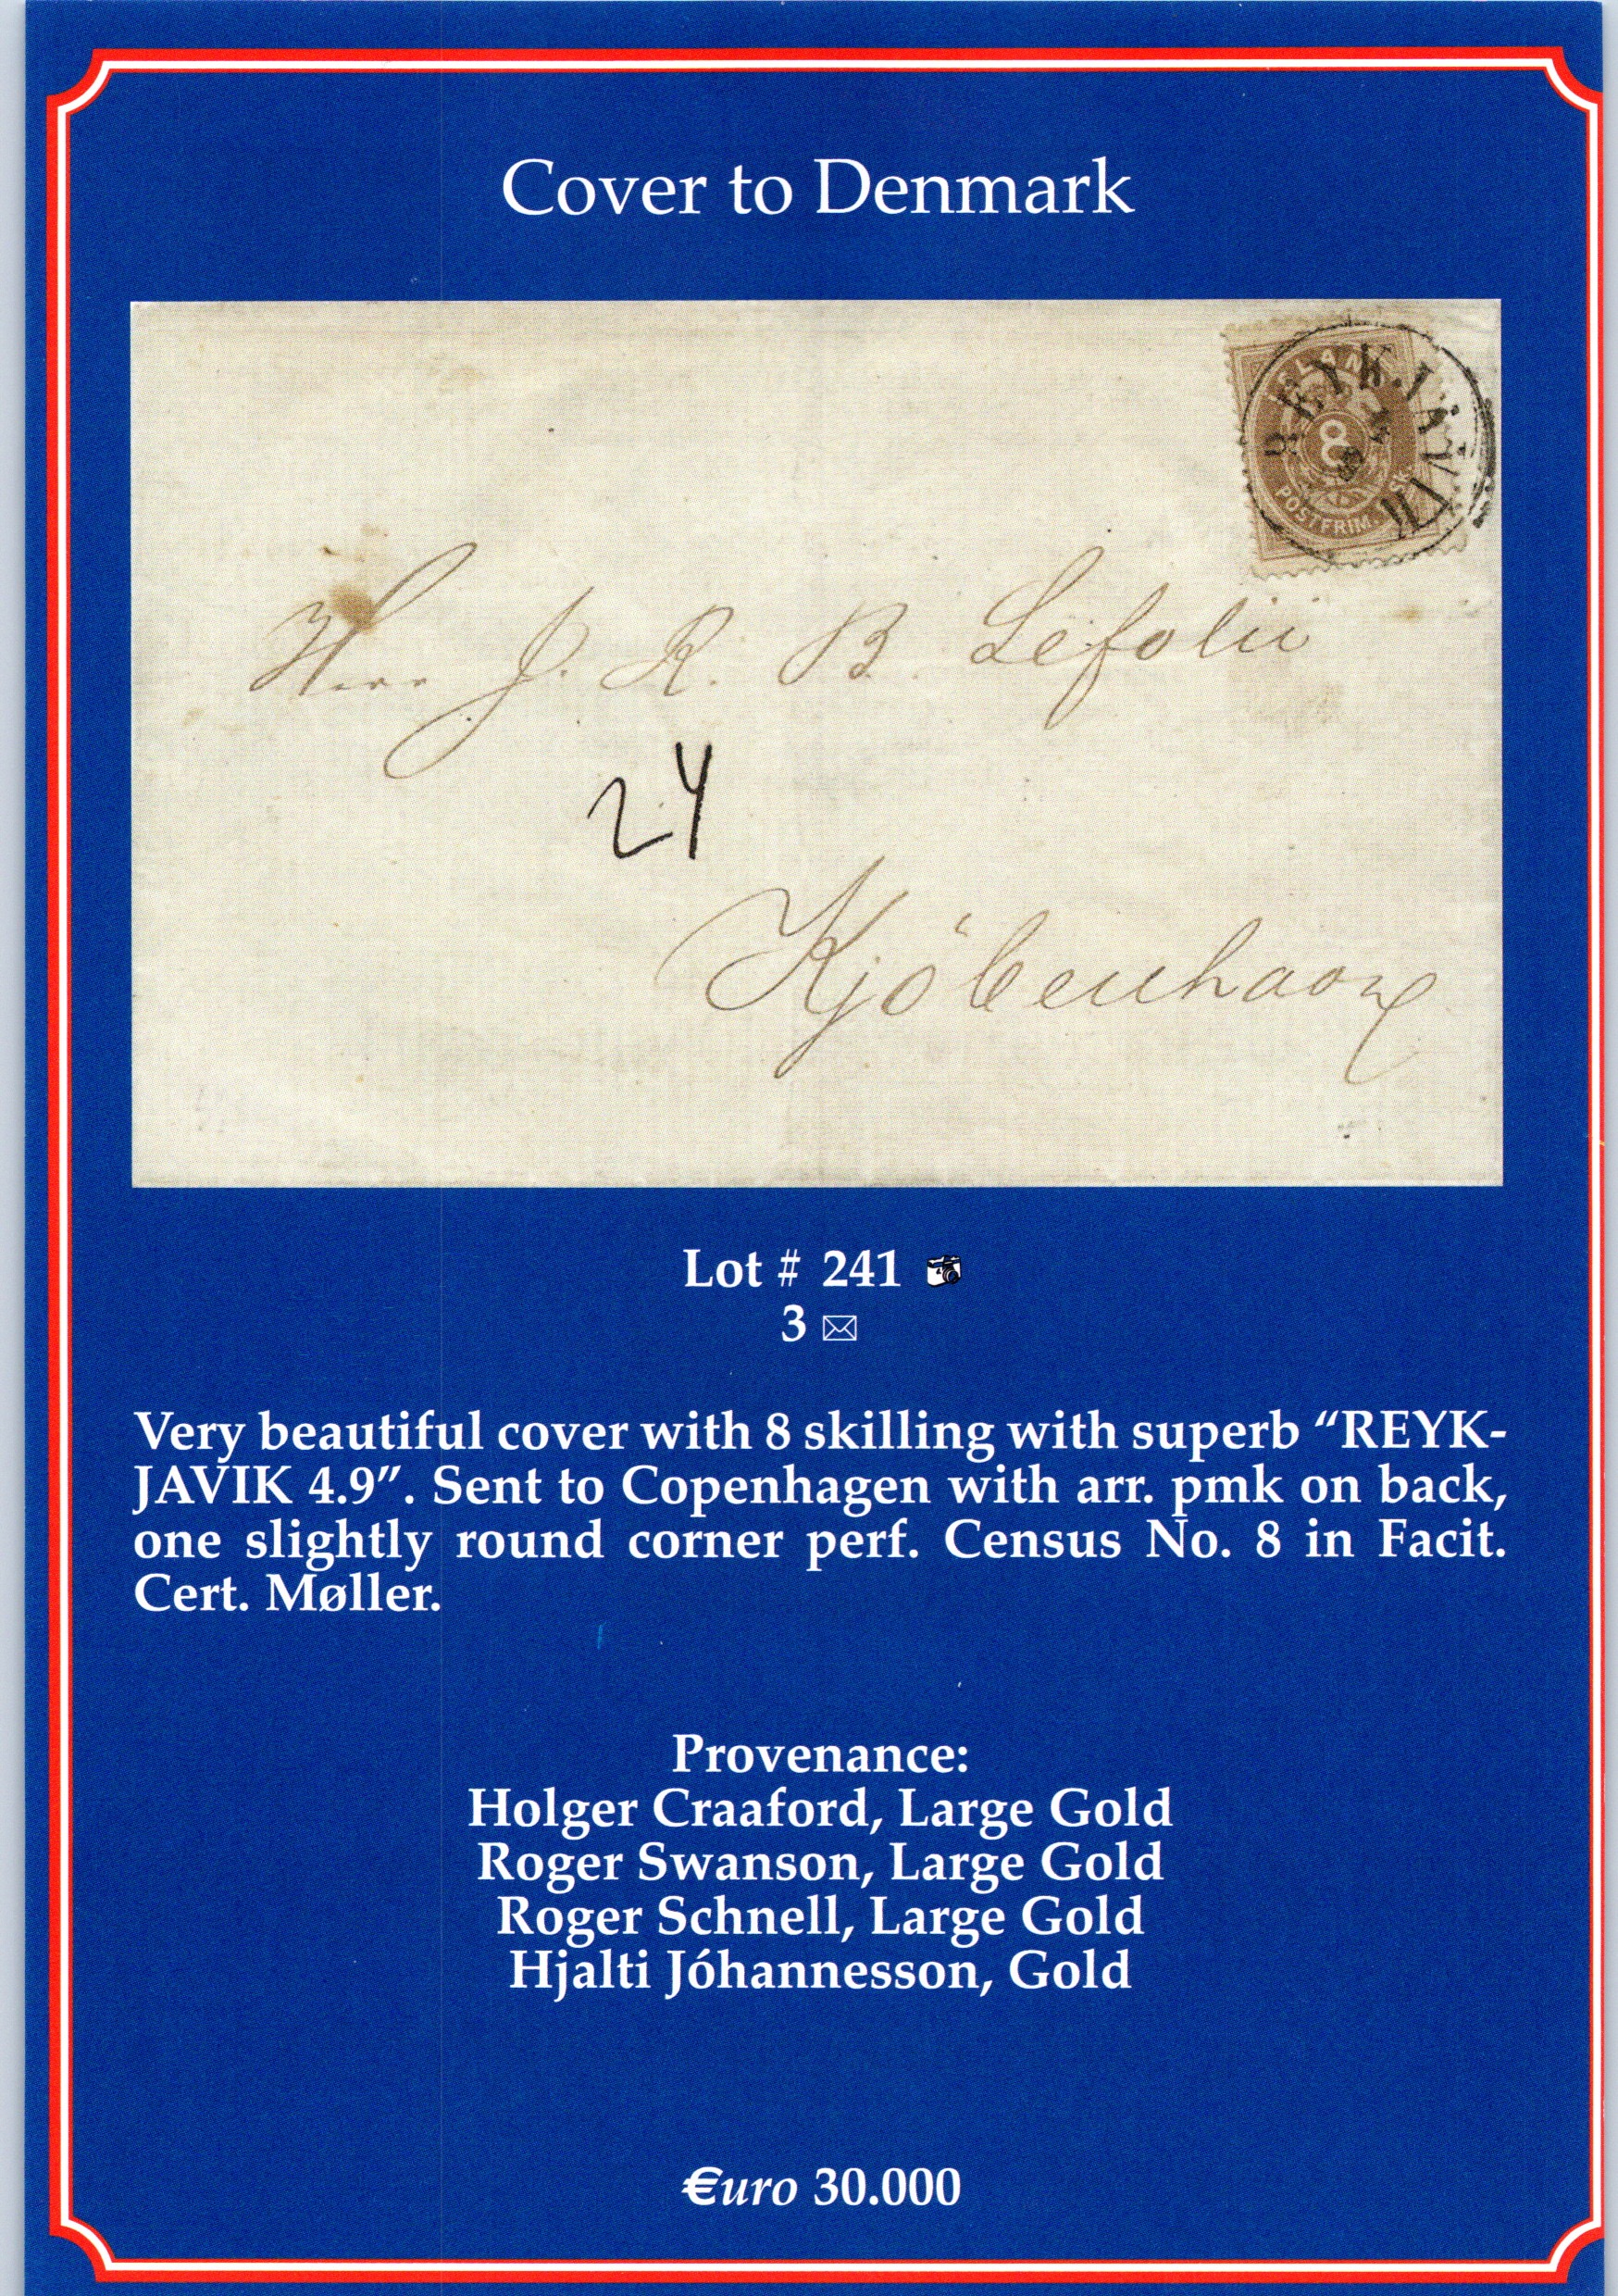 Cover to Denmark
ISLAND
8
POSTFRIM. SK.
REYKJAVIK
Herr J. R. B. Lefolii
24
Kjöbenhavn
Lot # 241
3
Very beautiful cover with 8 skilling with superb “REYK-
JAVIK 4.9”. Sent to Copenhagen with arr. pmk on back,
one slightly round corner perf. Census No. 8 in Facit.
Cert. Møller.
Provenance:
Holger Craaford, Large Gold
Roger Swanson, Large Gold
Roger Schnell, Large Gold
Hjalti Jóhannesson, Gold
€uro 30.000